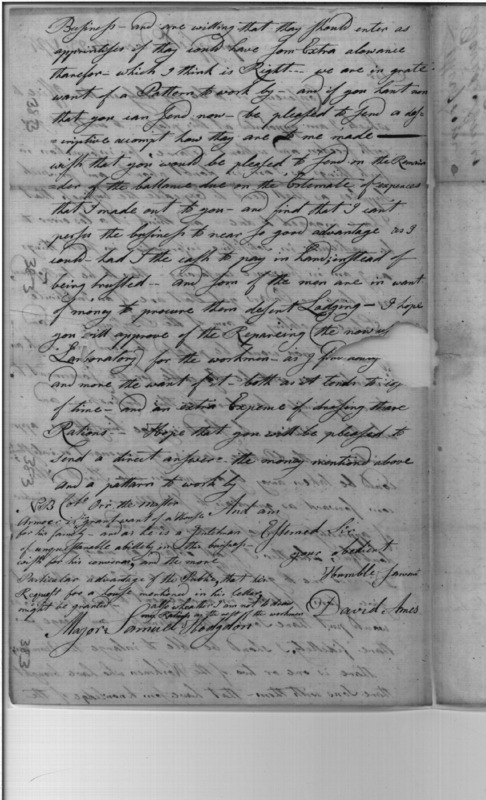 Business - and are willing that they should enter as
apprintises if they could have som Extra alowance
therefor - which I think is Right - we are in grate
want of a Pattern to work by - and if you hant one
that you can Send now - be pleased to Send a des-
criptive acompt how they are to me made -
wish that you would be pleased to Send on the Remain
der of the ballance due on the Estemate of expences
that I made out to you - and find that I cant
persue the business to near so good advantage as I
could - had I the cash to pay in hand; instead of
being trusted - and som of the men are in want
of money to procure them desent Lodging - I hope
you will approve of the Repairing (the now
Laboratory) for the workmen - as I find every
and more the want of it - both as it tends to
of time - and an extra Expence of dressing there
Rations - Hope that you will be pleased to
Send a direct answer - the money mentioned above
and a pattern to work by
And am
NB Mr Orr the master
Armorer is in grant want of a house
for his family - and as he is a Gentleman
of unquestionable abilety in other business -
wish for his conveniancy and the more
Particular advantage of the Public, that his
Request for a house mentioned in his letter
might be granted
Esteemed Sir
your obedient
Humble Servant
David Ames
allso wheather I am not to draw
my Rations as the rest of the workmen
Major Samuel Hodgdon